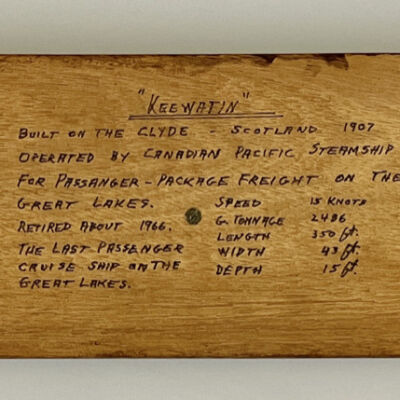 "KEEWATIN"
BUILT ON THE CLYDE - SCOTLAND 1907
OPERATED BY CANADIAN PACIFIC STEAMSHIP
FOR PASSANGER - PACKAGE FREIGHT ON THE
GREAT LAKES.
RETIRED ABOUT 1966.
THE LAST PASSENGER
CRUISE SHIP ON THE
GREAT LAKES.
SPEED 15 KNOTS
G. TONNAGE 2486
LENGTH 350 ft.
WIDTH 43 ft.
DEPTH 15 ft.